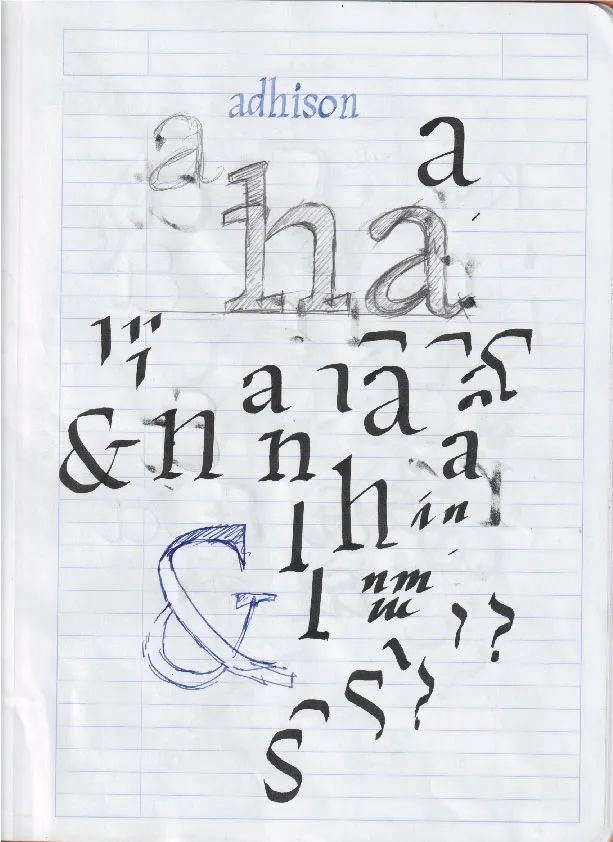 adhison
a
a
ha
a
a
&
n
n
a
h
l
in
&
l
nm
?
s
?
s